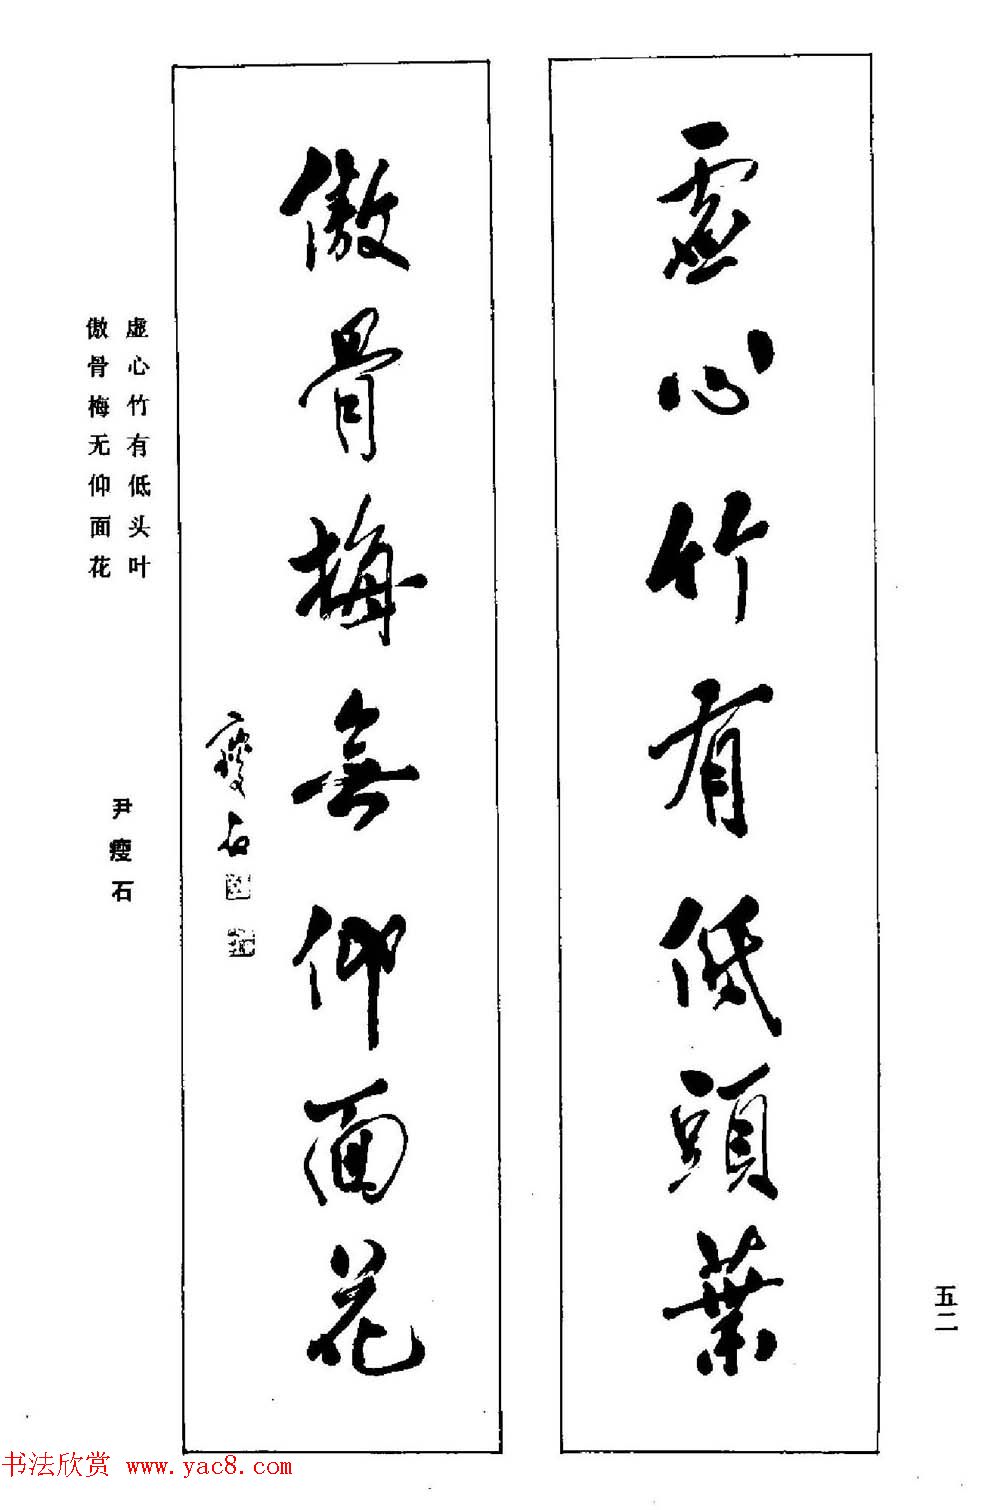 虛心竹有低頭葉
傲骨梅無仰面花
瘦石
虚心竹有低头叶
傲骨梅无仰面花
尹瘦石
五二
书法欣赏 www.yac8.com